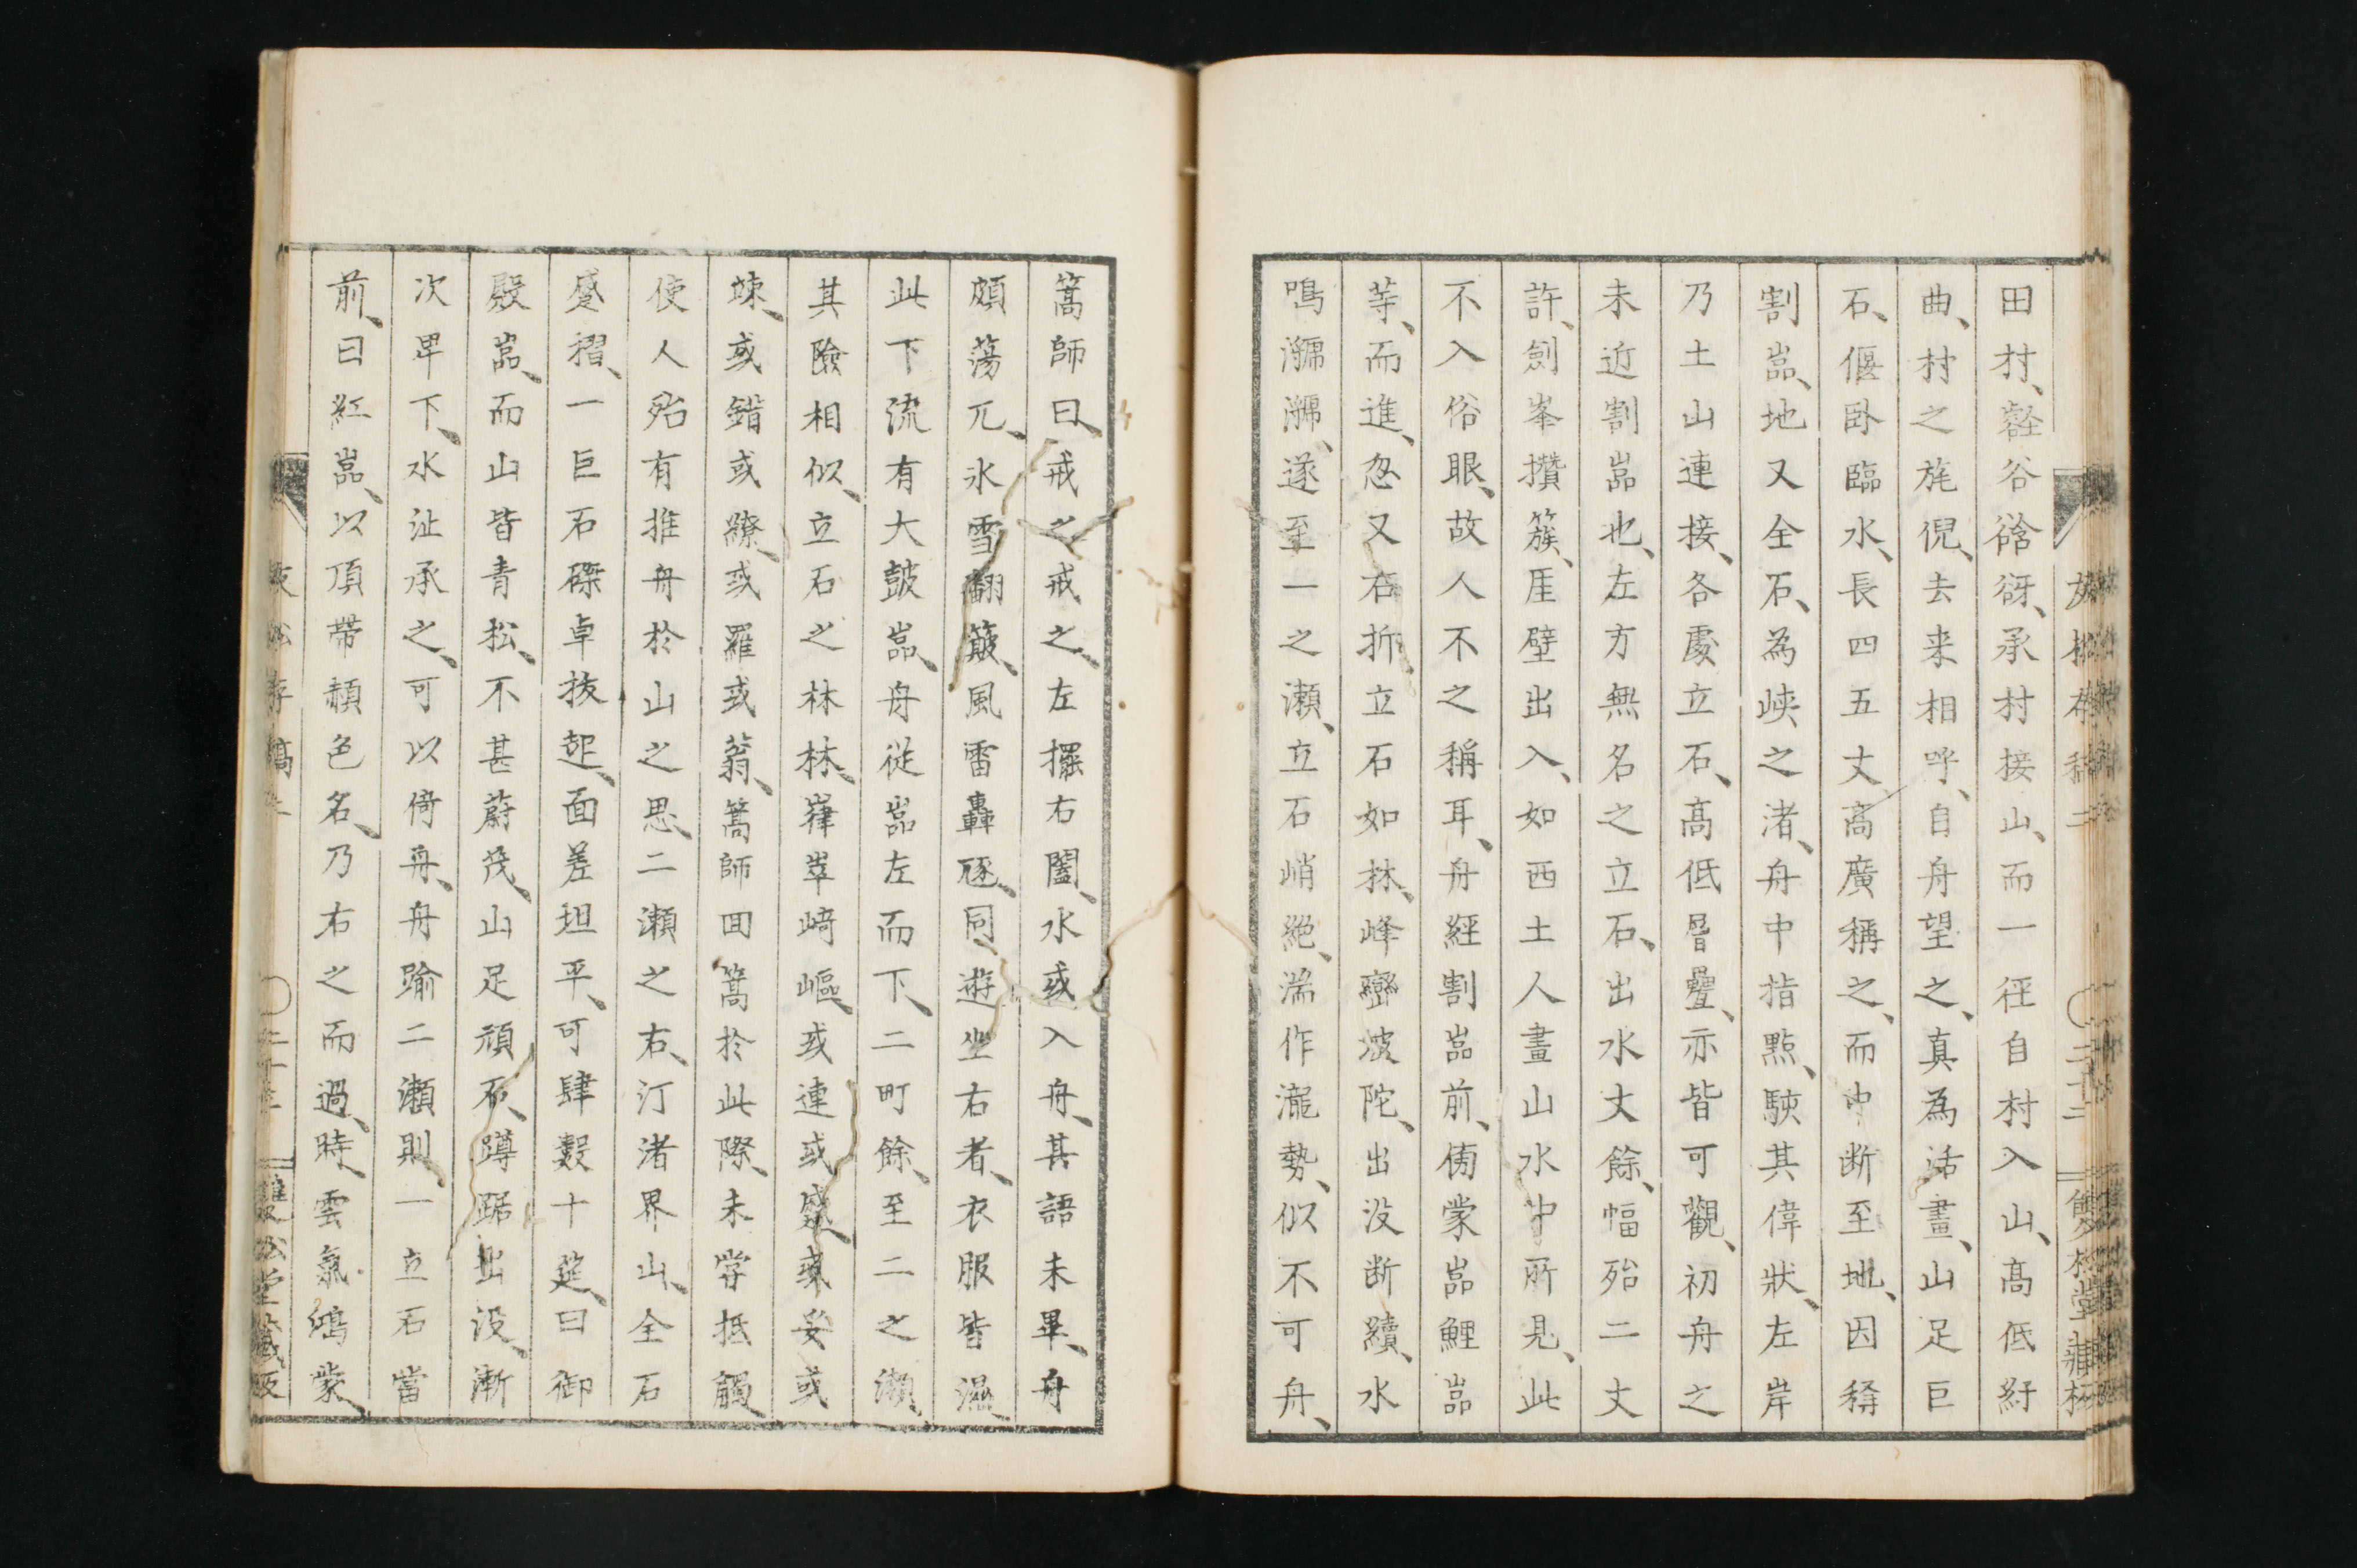 田村、谽谷谽谺、承村接山、而一径自村入山、髙低紆
曲、村之旄倪、去来相呼、自舟望之、真為活畫、山足巨
石、偃卧臨水、長四五丈、髙廣稱之、而中断至地、因稱
割嵒、地又全石、為峡之渚、舟中指點、駛其偉狀、左岸
乃土山連接、各處立石、髙低層疊、亦皆可觀、初舟之
未近割嵒也、左方無名之立石、出水丈餘、幅殆二丈
許、劍峯攢簇、厓壁出入、如西土人畫山水中所見、此
不入俗眼、故人不之稱耳、舟經割嵒前、傍蒙嵒鯉嵒
等、而進、忽又右折、立石如林、峰巒坡陀、出没断續、水
鳴㶁㶁、遂至一之瀬、立石峭絶、湍作瀧勢、似不可舟、
篙師曰、戒之戒之、左擺右闔、水或入舟、其語未畢、舟
頗蕩兀、氷雪翻簸、風雷轟豗、同遊坐右者、衣服皆濕、
此下流有大皷嵒、舟従嵒左而下、二町餘、至二之瀬、
其險相似、立石之林林、嵂崒崎嶇、或連或蹙、或妥或
竦、或錯或繚、或羅或蓊、篙師回篙於此際、未嘗抵觸、
使人殆有推舟於山之思、二瀬之右、汀渚界山、全石
蹙褶、一巨石磔卓抜起、面差坦平、可肆数十筵、曰御
殿嵒、而山皆青松、不甚蔚茂、山足頑石、蹲踞出没、漸
次卑下、水沚承之、可以倚舟、舟踰二瀬則一立石當
前、曰紅嵒、以頂帶赬色名、乃右之而過、時、雲氣鴻蒙、